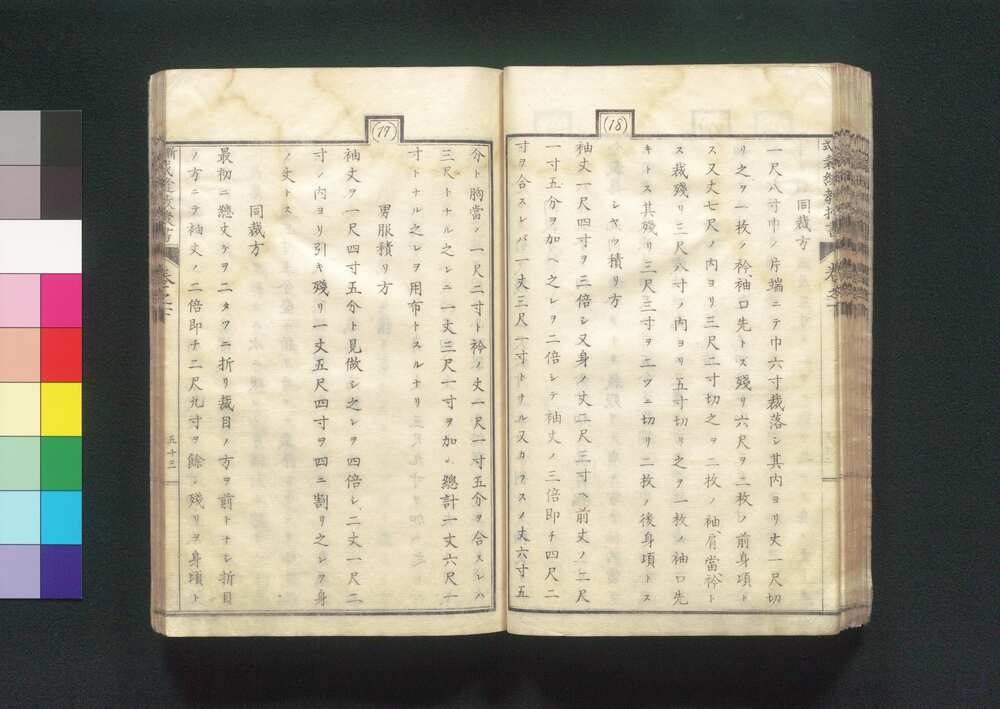 (18)
同裁方
一尺八寸巾ノ片端ニテ巾六寸裁落シ其内ヨリ丈一尺切
リ之ヲ一枚ノ衿、袖口先トス残リ六尺ヲ二枚ノ前身頃ト
ス又丈七尺ノ内ヨリ三尺二寸切之ヲ二枚ノ袖、肩當衿ト
ス裁残リ三尺八寸ノ内ヨリ五寸切リ之ヲ一枚ノ袖口先
キトス其残リ三尺三寸ヲ二ツニ切リ二枚ノ後身頃トス
シヤツ積リ方
袖丈一尺四寸ヲ三倍シ又身ノ丈二尺三寸ヘ前丈ノ二尺
一寸五分ヲ加ヘ之レヲ二倍シテ袖丈ノ三倍即チ四尺二
寸ヲ合スレバ一丈三尺一寸トナル又カフスノ丈六寸五
(17)
分ト胸當ノ一尺二寸ト衿ノ丈一尺一寸五分ヲ合スレハ
三尺トナル之レニ一丈三尺一寸ヲ加ヘ總計一丈六尺一
寸トナル之レヲ用布トスルナリ
男服積リ方
袖丈ヲ一尺四寸五分ト見做シ之レヲ四倍シ二丈一尺二
寸ノ内ヨリ引キ残リ一丈五尺四寸ヲ四ニ割リ之レヲ身
ノ丈トス
同裁方
最初ニ總丈ケヲ二タツニ折リ裁目ノ方ヲ前トナシ折目
ノ方ニテ袖丈ノ二倍即チ二尺九寸ヲ餘シ残リヲ身頃ト
五十三